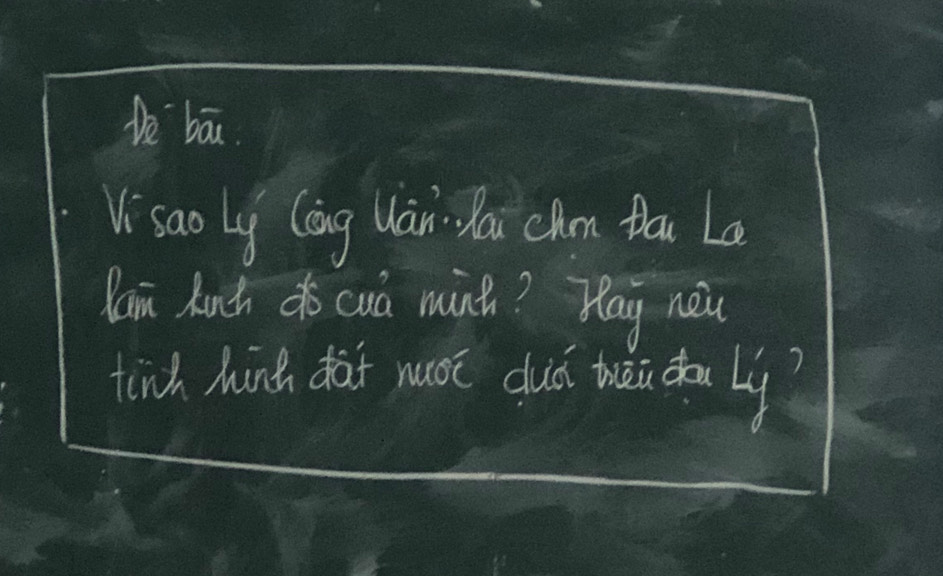 Đề bài.
Vì sao Lý Công Uẩn lại chọn Đại La
làm kinh đô của mình? Hãy nêu
tình hình đất nước dưới triều đại Lý?